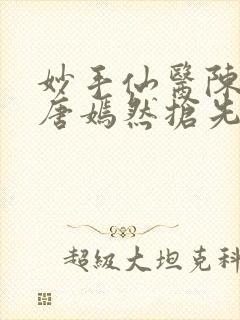 妙手仙醫陳
唐嫣然搶先
超級大坦克科